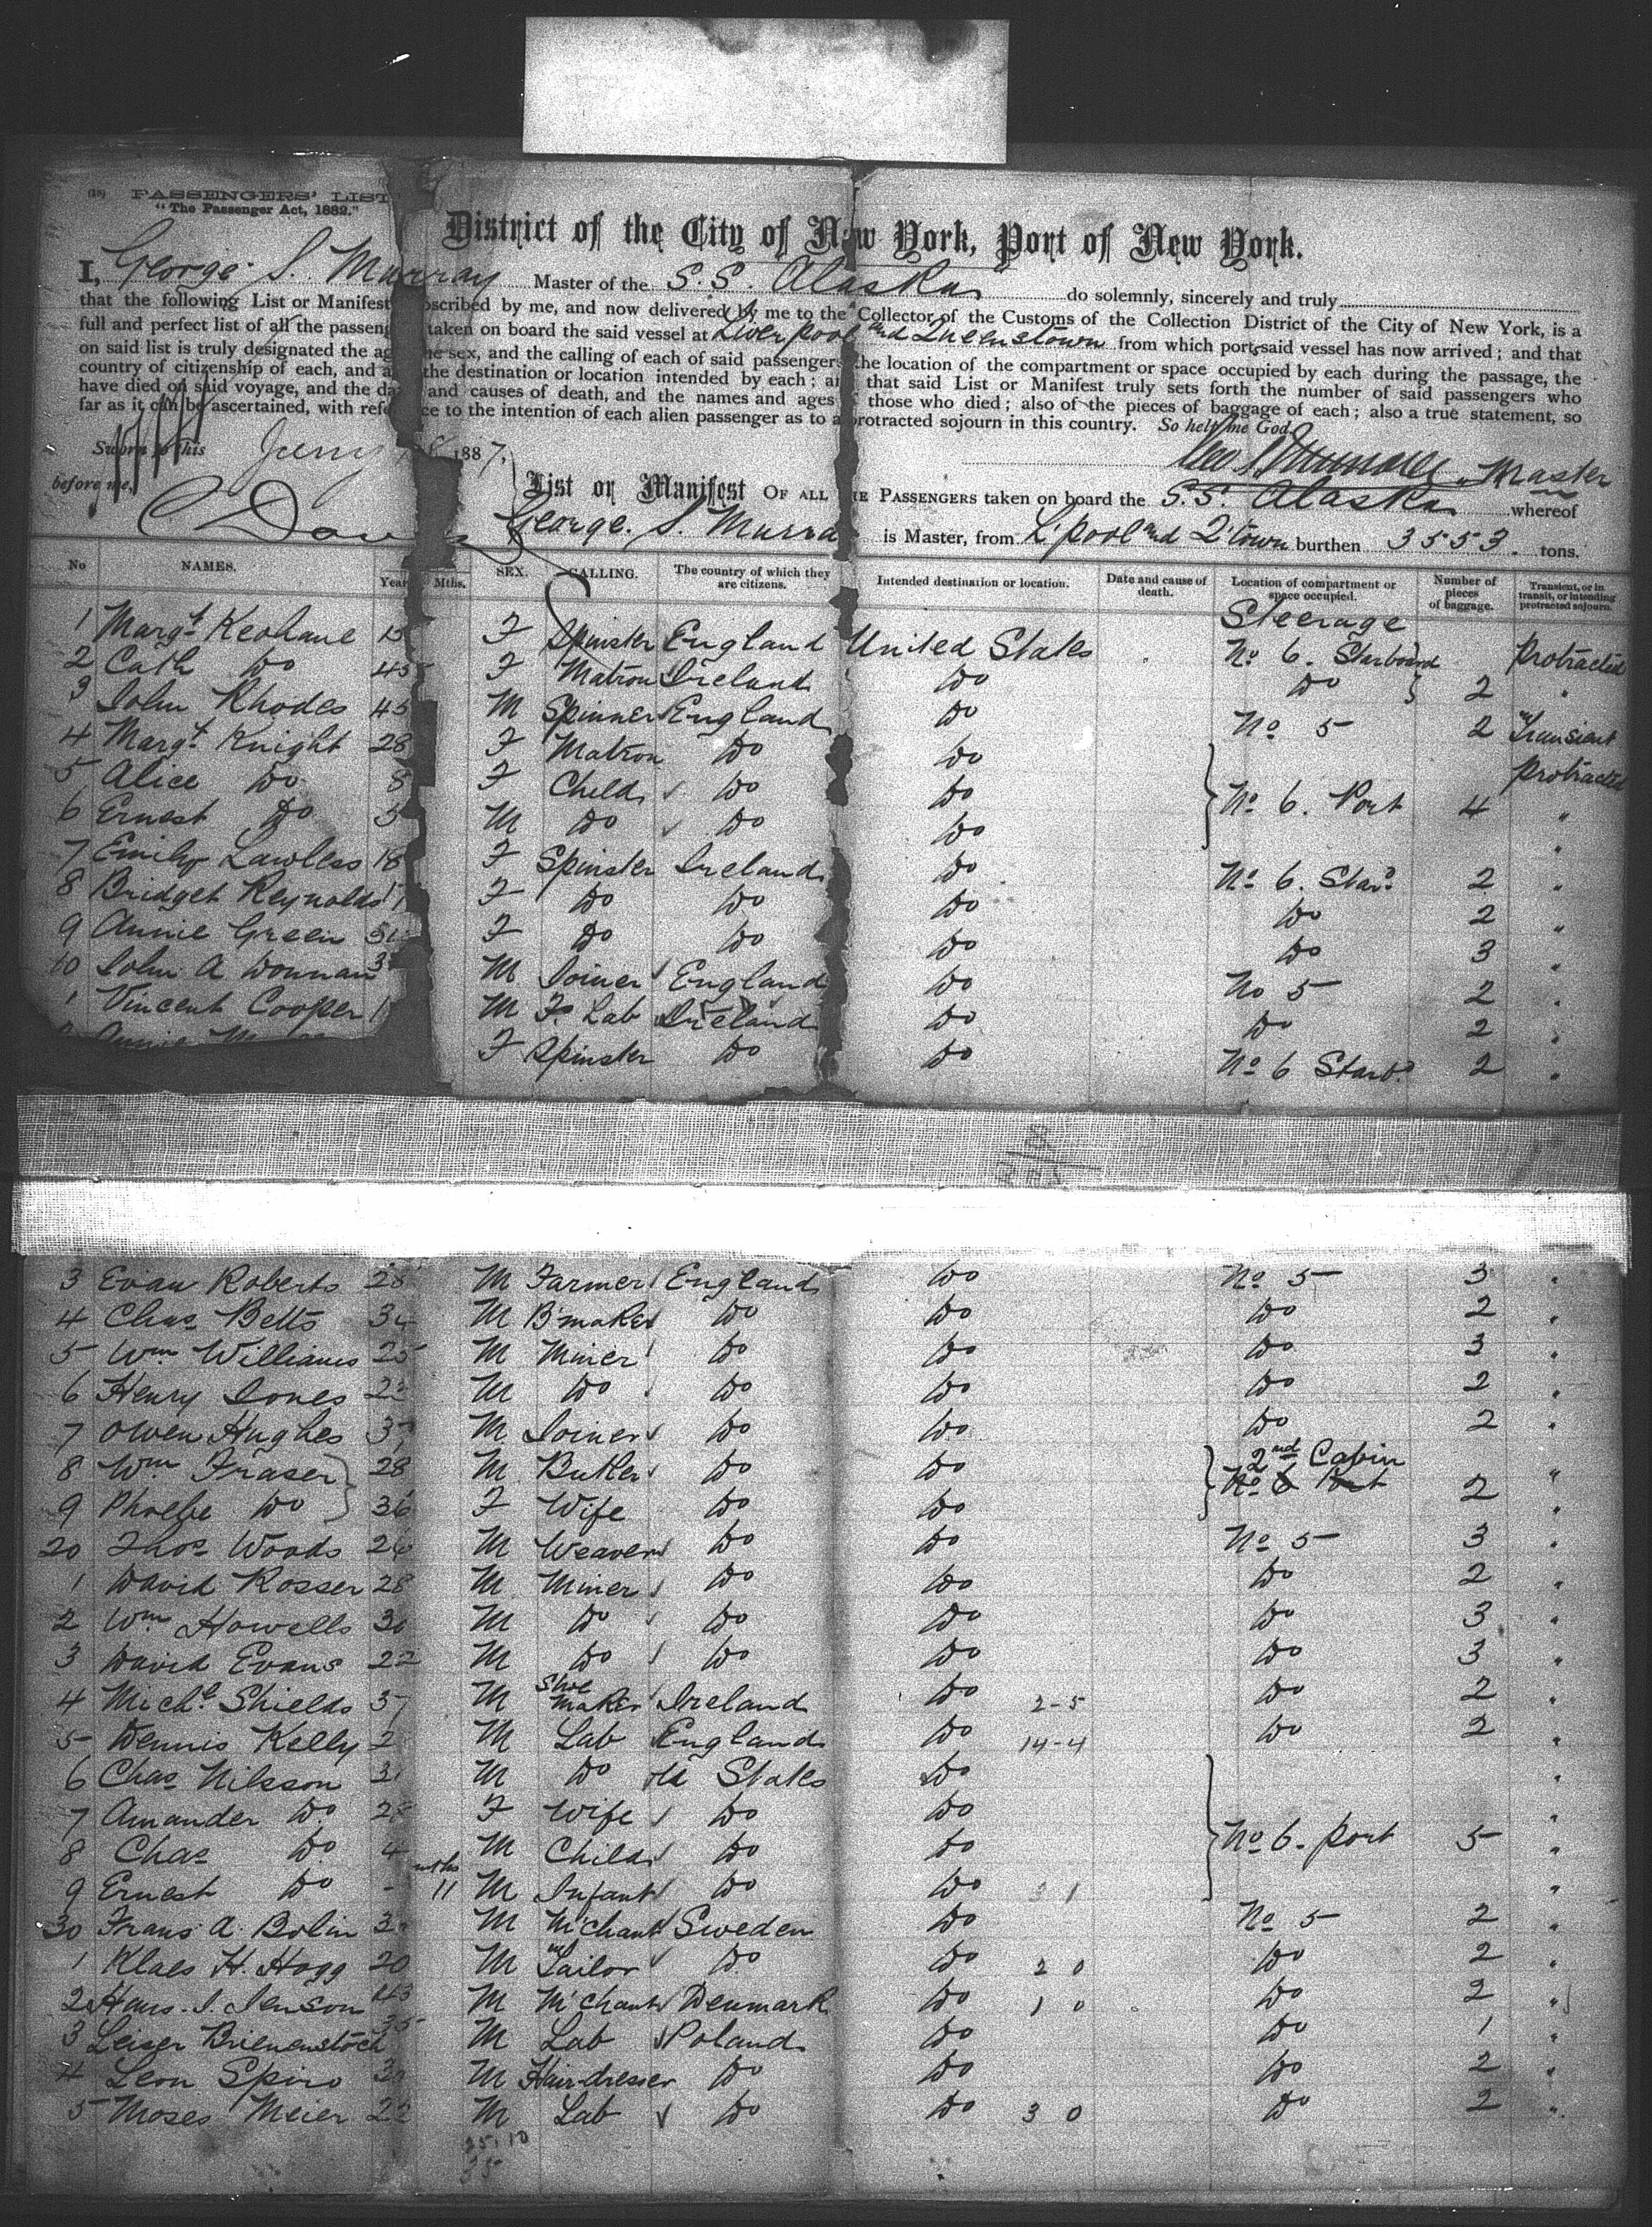 (18) PASSENGERS' LIST
"The Passenger Act, 1882."
District of the City of New York, Port of New York.
I, George S. Murray Master of the S.S. Alaska do solemnly, sincerely and truly
that the following List or Manifest scribed by me, and now delivered by me to the Collector of the Customs of the Collection District of the City of New York, is a
full and perfect list of all the passeng taken on board the said vessel at Liverpool and Queenstown from which port said vessel has now arrived; and that
on said list is truly designated the ag he sex, and the calling of each of said passengers the location of the compartment or space occupied by each during the passage, the
country of citizenship of each, and a the destination or location intended by each; an that said List or Manifest truly sets forth the number of said passengers who
have died on said voyage, and the da and causes of death, and the names and ages those who died; also of the pieces of baggage of each; also a true statement, so
far as it can be ascertained, with refe ce to the intention of each alien passenger as to a protracted sojourn in this country. So help me God.
Sworn to this Jany 1887,
Geo S Murray Master
before me,
List or Manifest OF ALL THE PASSENGERS taken on board the S.S. Alaska whereof
George. S. Murra is Master, from L'pool and Q'town burthen 3553. tons.
No NAMES. Year Mths. SEX. CALLING. The country of which they are citizens. Intended destination or location. Date and cause of death. Location of compartment or space occupied. Number of pieces of baggage. Transient, or in transit, or intending protracted sojourn.
Steerage
1 Margt Keohane F Spinster England United States No 6. Starboard Protracted
2 Cath Do 45 F Matron Ireland Do Do } 2 "
3 John Rhodes 45 M Spinner England Do No 5 2 Transient
4 Margt Knight 28 F Matron Do Do Protracted
5 Alice Do 8 F Child Do Do } No 6. Port 4 "
6 Ernest Do M Do Do Do "
7 Emily Lawless 18 F Spinster Ireland Do No 6. Stard 2 "
8 Bridget Reynolds F Do Do Do Do 2 "
9 Annie Green F Do Do Do Do 3 "
10 John A Donnan M Joiner England Do No 5 2 "
1 Vincent Cooper M F. Lab Ireland Do Do 2 "
Annie F Spinster Do Do No 6 Starbd 2 "
3 Evan Roberts 28 M Farmer England Do No 5 3 "
4 Chas Betts M B'maker Do Do Do 2 "
5 Wm Williams 25 M Miner Do Do Do 3 "
6 Henry Jones M Do Do Do Do 2 "
7 Owen Hughes M Joiner Do Do Do 2 "
8 Wm Fraser } 28 M Butler Do Do } 2nd Cabin "
9 Phoebe Do } 36 F Wife Do Do No 6 Port 2
20 Thos Woods 26 M Weaver Do Do No 5 3 "
1 David Rosser 28 M Miner Do Do Do 2 "
2 Wm Howells 30 M Do Do Do Do 3 "
3 David Evans 22 M Do Do Do Do 3 "
4 Michl Shields 37 M Shoe maker Ireland Do 2-5 Do 2 "
5 Dennis Kelly M Lab England Do 14-4 Do 2 "
6 Chas Nilsson M Do U States Do "
7 Amander Do 28 F Wife Do Do "
8 Chas Do 4 M Child Do Do } No 6. Port 5 "
9 Ernest Do - mths 11 M Infant Do Do 3 1 "
30 Frans A. Bolin M M'chant Sweden Do No 5 2 "
1 Klaes H. Hogg 20 M Tailor Do Do 2 0 Do 2 "
2 Hans. J. Jenson 43 M M'chant Denmark Do 1 0 Do 2 "
3 Leiser Brienenstock 35 M Lab Poland Do Do 1 "
4 Leon Spiro M Hairdresser Do Do Do 2 "
5 Moses Meier 22 M Lab Do Do 3 0 Do 2 "
25.10
35